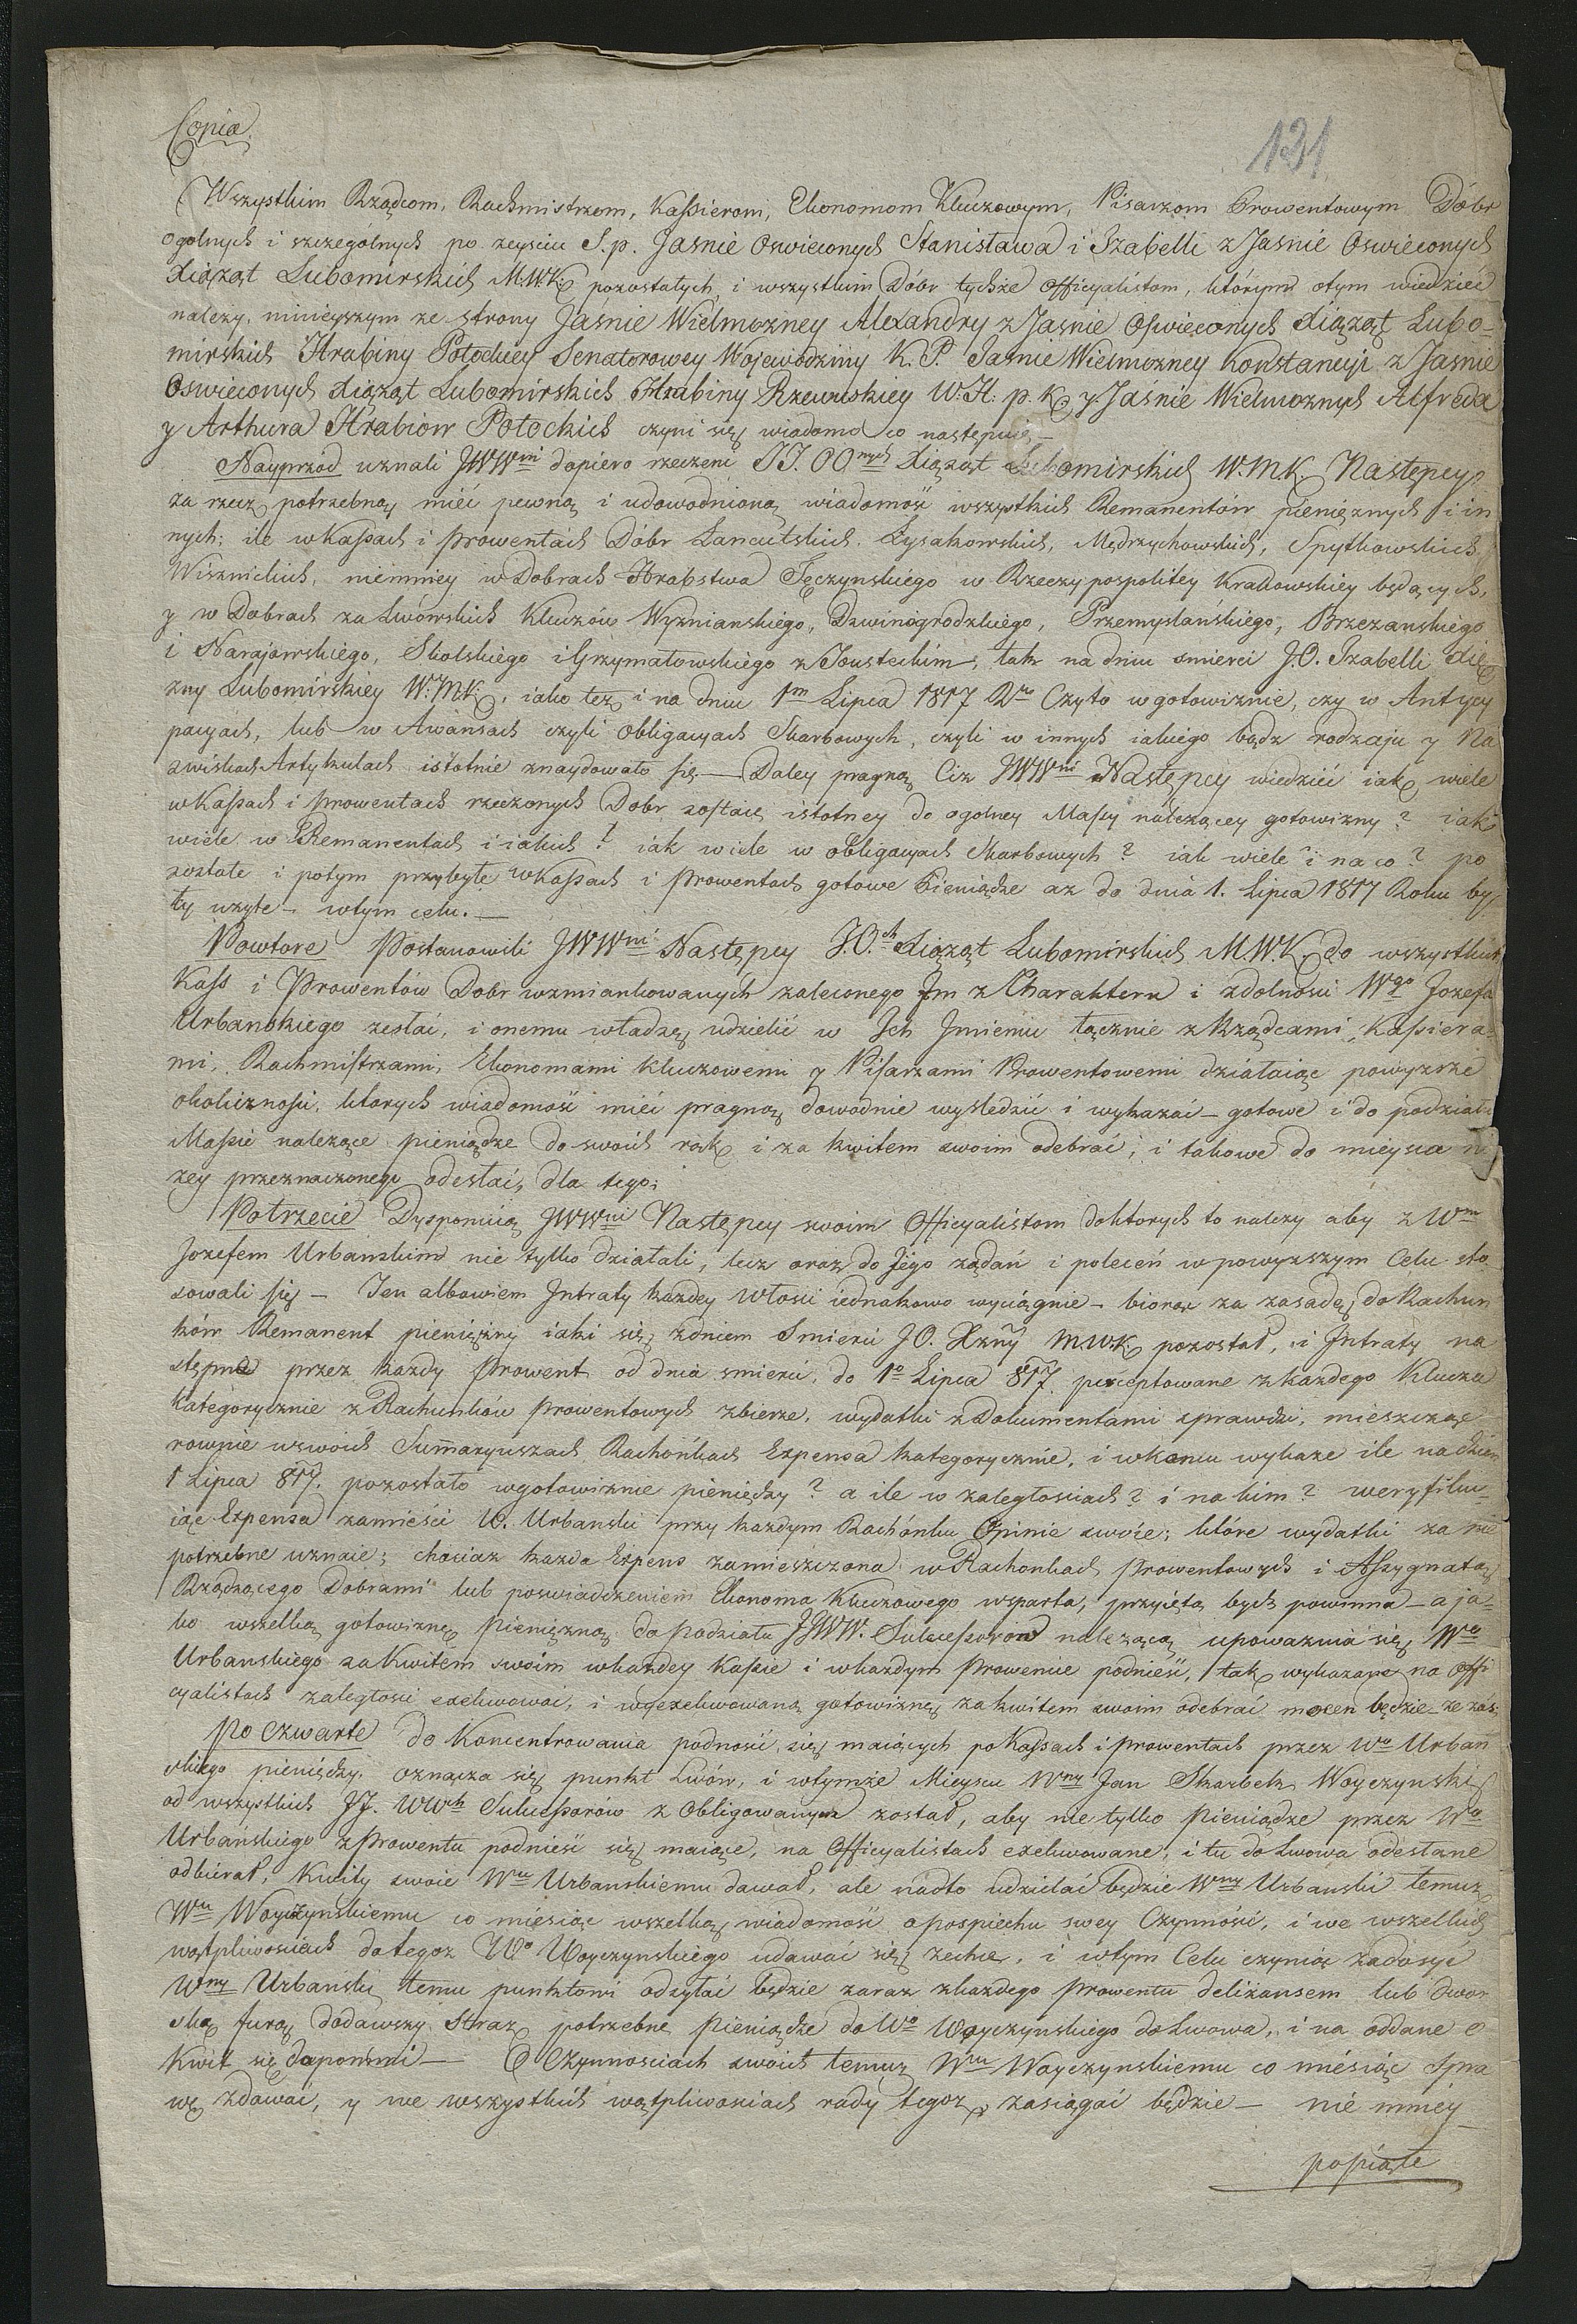 Copia.
131
Wszystkim Rządcom, Rachmistrzom, Kassierom, Ekonomom Kluczowym, Pisarzom Prowentowym Dóbr
ogolnych i szczególnych po zeysciu S.p. Jaśnie Oswieconych Stanisława i Izabelli z Jasnie Oswieconych
Xiążąt Lubomirskich M.W.K. pozostałych, i wszystkim Dóbr tychże Officyalistom, którym otym wiedzieć
należy, ninieyszym ze strony Jaśnie Wielmożney Alexandry z Jasnie Oswieconych Xiążąt Lubo-
mirskich Hrabiny Potockiey Senatorowey Wojewodziny K.P. Jasnie Wielmożney Konstancyi z Jasnie
Oswieconych Xiążąt Lubomirskich Hrabiny Rzewuskiey W.H. p. K. y Jaśnie Wielmoznych Alfreda
y Arthura Hrabiow Potockich czyni się wiadomo co następuie —
Nayprzod uznali JWWni dopiero rzeczeni JJ. OOnych Xiążąt Lubomirskich W.M.K. Następcy
za rzecz potrzebną mieć pewną i udowodnioną wiadomość wszystkich Remanentów pieniężnych i in
nych; ile w Kassach i prowentach Dóbr Łancutskich, Łysakowskich, Mędrzychowskich, Spytkowskich
Wisznickich, niemniey w Dobrach Hrabstwa Tęczynskiego w Rzeczypospolitey Krakowskiey będących,
y w Dobrach za Lwówskich Kluczów Wyznianskiego, Dzwinogrodzkiego, Przemyslańskiego, Brzezanskiego
i Narajowskiego, Skolskiego i Grzymałowskiego z Tousteckim, tak na dniu smierci J.O. Izabelli Xię
zny Lubomirskiey W.M.K., iako też i na dniu 1m Lipca 1817 Ro Czyto w gotowiznie, czy w Antycy
pacyach, lub w Awansach czyli obligacyach Skarbowych, czyli w innych iakiego bądz rodzaju y Na
zwiskach Artykułach istotnie znaydowało się — Daley pragną Ciż JWWni Następcy wiedzieć iak wiele
w Kassach i prowentach rzeczonych Dobr zostaie istotney do ogolney Massy należącey gotowizny? iak
wiele w Remanentach i iakich? iak wiele w obligacyach Skarbowych? iak wiele i na co? po
zostałe i potym przybyłe w Kassach i prowentach gotowe Pieniądze aż do dnia 1. Lipca 1817 Roku by
ły uzyte — w tym celu. —
Powtore Postanowili JWWni Następcy J.O.ch Xiążąt Lubomirskich M.W.K. do wszystkich
Kass i Prowentów Dobr wzmiankowanych zaleconego Im z Charakteru i zdolności Wgo Jozefa
Urbanskiego zesłać, i onemu władzę udzielić w Ich Imieniu łącznie z Rządcami, Kassiera-
mi, Rachmistrzami, Ekonomami kluczowemi y Pisarzami Prowentowemi działaiąc powyzsze
okoliczności, ktorych wiadomość mieć pragną dowodnie wysledzić i wykazać — gotowe i do podziału
Massie nalezące pieniądze do swoich rąk i za kwitem swoim odebrać, i takowe do mieysca ni
zey przeznaczonego odesłać, dla tego;
Potrzecie Dysponuią JWWni Następcy swoim Officyalistom do ktorych to nalezy aby z Wm
Jozefem Urbanskim nie tylko działali, lecz oraz do Jego żądań i poleceń w powyzszym Celu sto
sowali się — Ten albowiem Intraty każdey Włości iednakowo wyciągnie — biorąc za zasadę do Rachun
ków Remanent pieniężny iaki się z dniem Smierci JO. Xzny M.W.K. pozostał, i Intraty na
stępne przez każdy prowent od dnia smierci do 1o Lipca 817 perceptowane z każdego Klucza
Kategorycznie z Rachunków prowentowych zbierze, wydatki z Dokumentami sprawdzi, mieszcząc
rownie w swoich Summaryuszach Rachonkach Expensa kategorycznie, i w koncu wykaze ile na dzień
1 Lipca 817. pozostało w gotowiznie pieniędzy? a ile w zaległosciach? i na kim? weryfiku-
iąc Expensa zamieści W. Urbanski przy każdym Rachónku Opinie swóie; które wydatki za nie
potrzebne uznaie; chociaz kazda Expens zamieszczona w Rachonkach prowentowych i Assygnatą
Rządzącego Dobrami lub poswiadczeniem Ekonoma Kluczowego wsparta, przyięta bydz powinna — a ja-
ko wszelką gotowiznę pieniężną do podziału JJWW. Sukcessorow nalezącą upowaznia się Wo
Urbanskiego za Kwitem swoim w każdey Kassie i w każdym prowencie podnieść, tak wykazane na Offi
cyalistach zaległosci exekwować, i wyexekwowaną gotowiznę za kwitem swoim odebrać mocen będzie — ze zaś;
Po czwarte do Koncentrowania podnosić się maiących po Kassach i prowentach przez Wo Urban
skiego pieniędzy oznacza się punkt Lwów, i w tymże Mieyscu Wny Jan Skarbek Woyczynski
od wszystkich JJ. WWch Sukcessorów z obligowanym został, aby nie tylko Pieniądze przez Wo
Urbańskiego z prowentu podnieść się maiące, na Officyalistach exekwowane, i tu do Lwowa odesłane
odbierał, Kwity swoie Wmu Urbanskiemu dawał, ale nadto udzielać będzie Wny Urbański temuz
Wmu Woyczynskiemu co miesiąc wszelką wiadomość o pospiechu swey Czynności, i we wszelkich
wątpliwościach do tegoz Wo Woyczynskiego udawać się zechce, i w tym Celu czyniąc zadosyć
Wny Urbanski temu punktowi odsyłać będzie zaraz z każdego prowentu deliżansem lub Dwor
ską furą dodawszy Straz potrzebne Pieniądze do Wo Woyczynskiego do Lwowa, i na oddane o
Kwit się dopomni — O Czynnosciach swoich temuz Wmu Woyczynskiemu co miésiąc Spra
wę zdawać, y we wszystkich wątpliwosciach rady tegoz zasiągać będzie — nié mniéy
popiąte